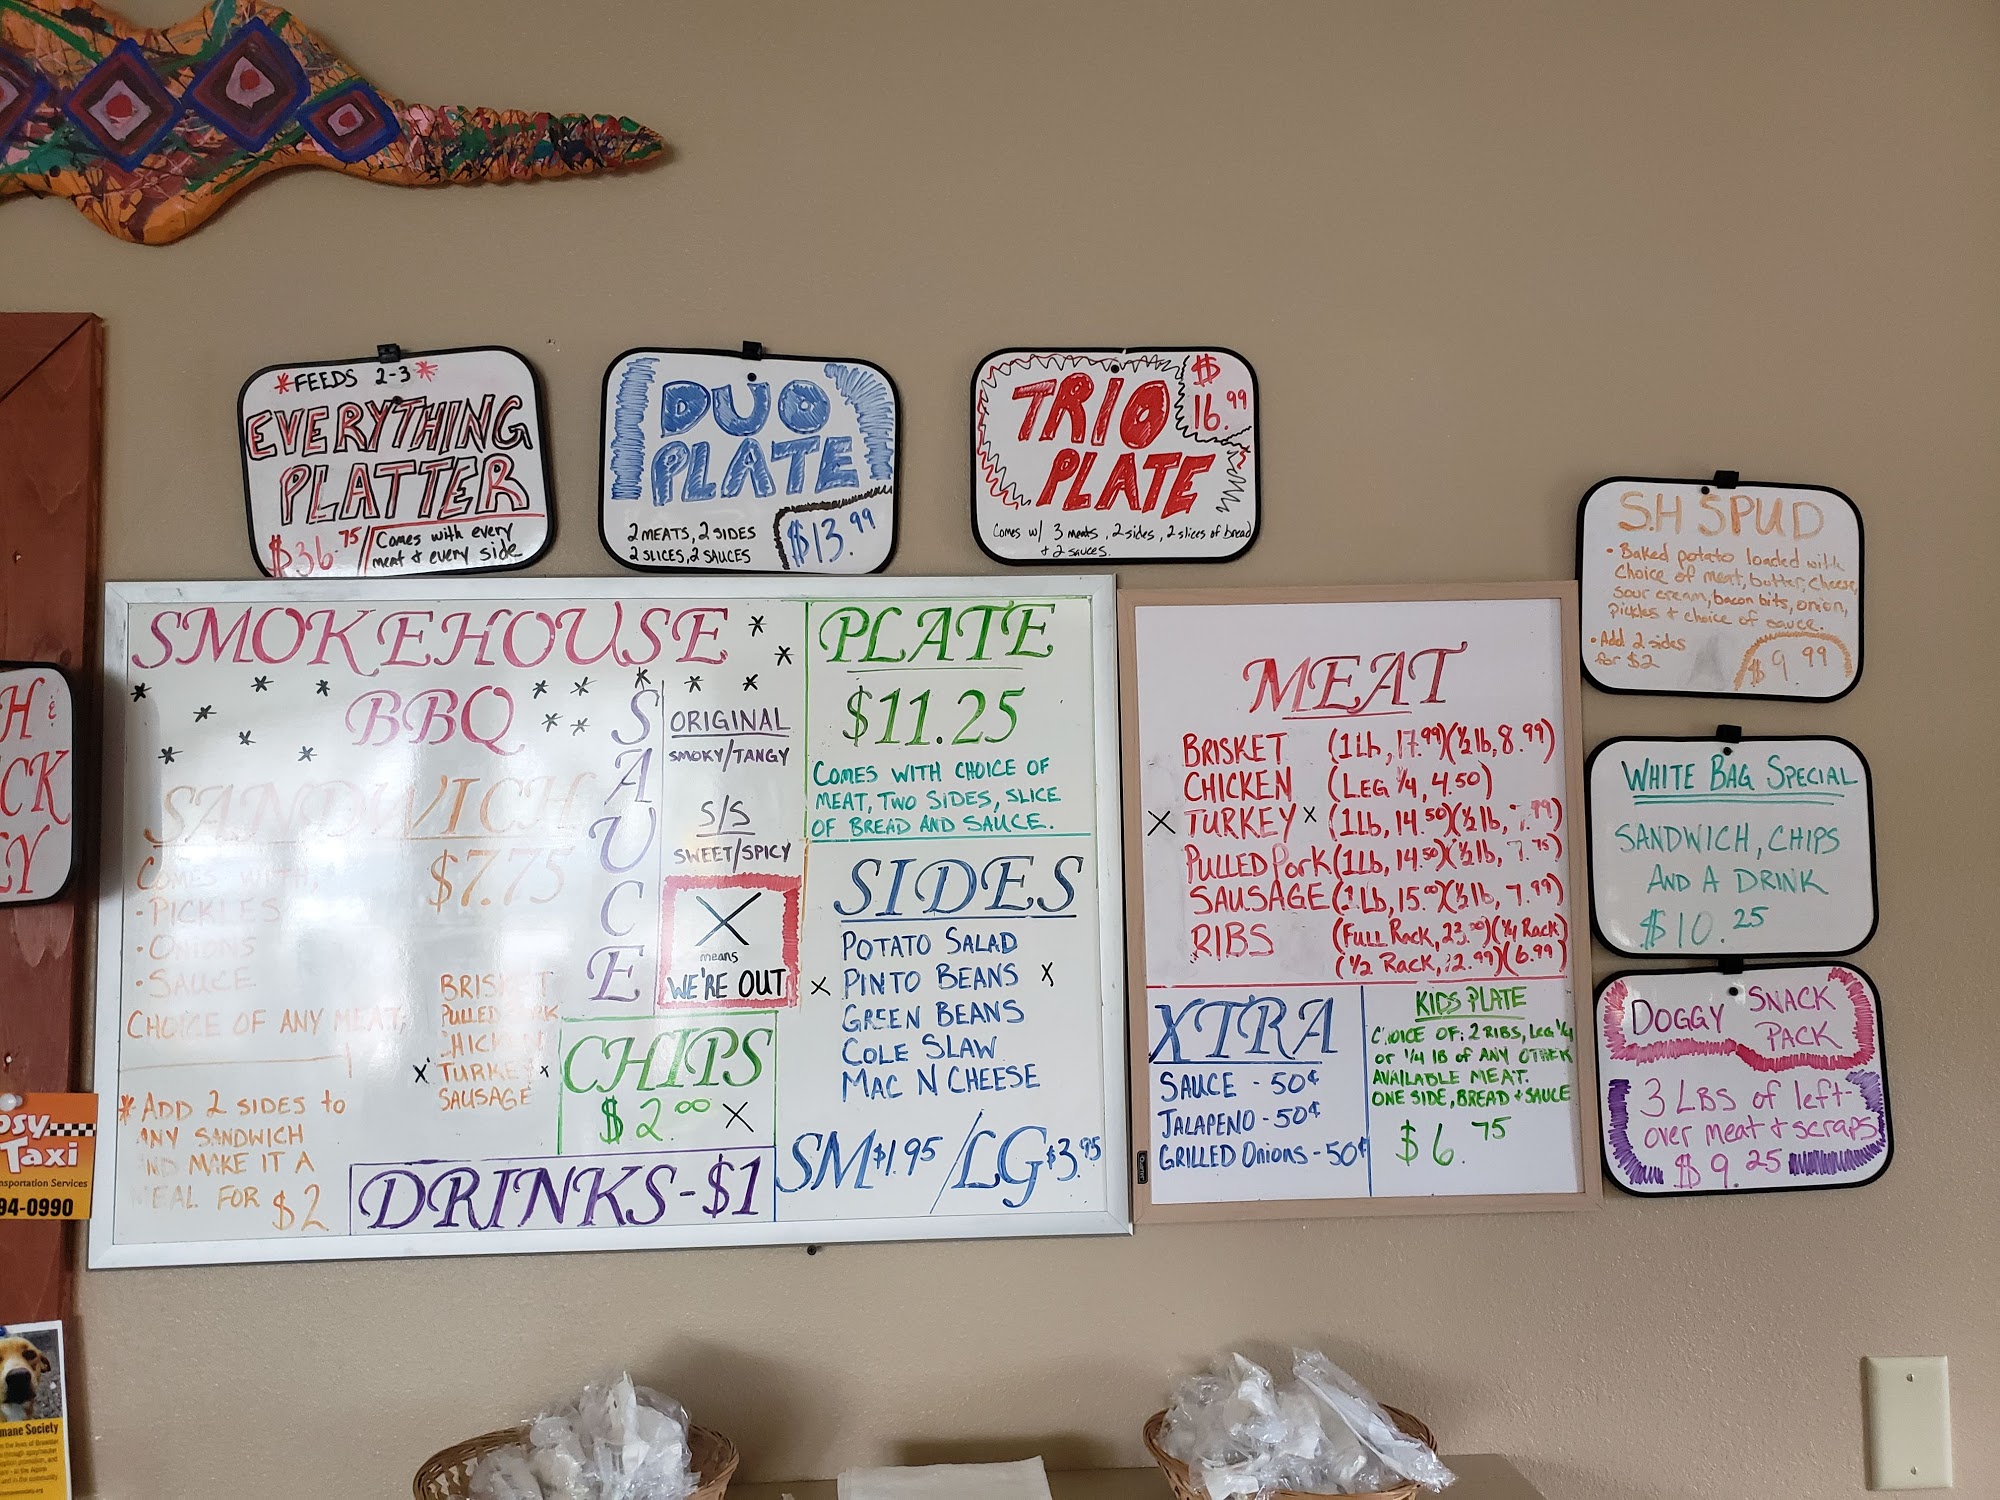 *FEEDS 2-3*
EVERYTHING
PLATTER
$36.75/
Comes with every
meat & every side
DUO
PLATE
2 MEATS, 2 SIDES
2 SLICES, 2 SAUCES
$13.99
TRIO
PLATE
$
16.99
Comes w/ 3 meats, 2 sides, 2 slices of bread
& 2 sauces.
S.H SPUD
• Baked potato loaded with
choice of meat, butter, cheese,
sour cream, bacon bits, onion,
pickles & choice of sauce.
• Add 2 sides
for $2
$9.99
WHITE BAG SPECIAL
SANDWICH, CHIPS
AND A DRINK
$10.25
DOGGY SNACK
PACK
3 LBS of left-
over meat & scraps
$9.25
SMOKEHOUSE
BBQ
SANDWICH
$7.75
COMES WITH,
-PICKLES
•ONIONS
•SAUCE
CHOICE OF ANY MEAT,
BRISKET
PULLED PORK
CHICKEN
X TURKEY X
SAUSAGE
*ADD 2 SIDES to
ANY SANDWICH
AND MAKE IT A
MEAL FOR $2
SAUCE
ORIGINAL
SMOKY/TANGY
S/S
SWEET/SPICY
X
means
WE'RE OUT
CHIPS
$2.00 X
DRINKS-$1
PLATE
$11.25
COMES WITH CHOICE OF
MEAT, TWO SIDES, SLICE
OF BREAD AND SAUCE.
SIDES
POTATO SALAD
X PINTO BEANS X
GREEN BEANS
COLE SLAW
MAC N CHEESE
SM $1.95 / LG $3.95
MEAT
BRISKET (1Lb, 17.99)(½lb, 8.99)
CHICKEN (LEG ¼, 4.50)
X TURKEY X (1Lb, 14.50)(½lb, 7.99)
PULLED Pork (1Lb, 14.50)(½lb, 7.75)
SAUSAGE (1Lb, 15.00)(½lb, 7.99)
RIBS (FULL RACK, 23.00)(¼ Rack)
(½ RACK, 12.99)(6.99)
XTRA
SAUCE - 50¢
JALAPENO - 50¢
GRILLED Onions - 50¢
KIDS PLATE
CHOICE OF: 2 RIBS, LEG ¼
or ¼ lB of ANY OTHER
AVAILABLE MEAT.
ONE SIDE, BREAD + SAUCE
$6.75
H &
CK
EY
osy
Taxi
nsportation Services
94-0990
mane Society